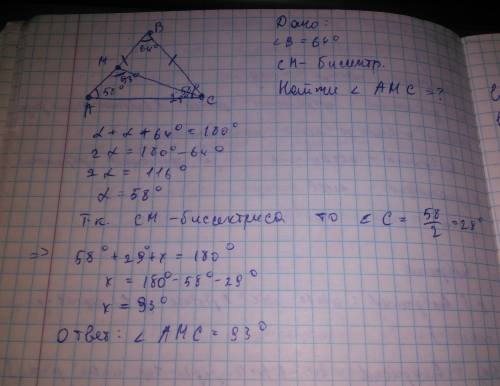 B
64°
M
93°
58°
A
58°
29°
C
Дано:
∠B = 64°
CM - биссектр.
Найти ∠ AMC = ?
α + α + 64° = 180°
2α = 180° - 64°
2α = 116°
α = 58°
Т.к. CM - биссектриса то ∠ C = 58/2 = 29°
=> 58° + 29° + x = 180°
x = 180° - 58° - 29°
x = 93°
Ответ: ∠ AMC = 93°